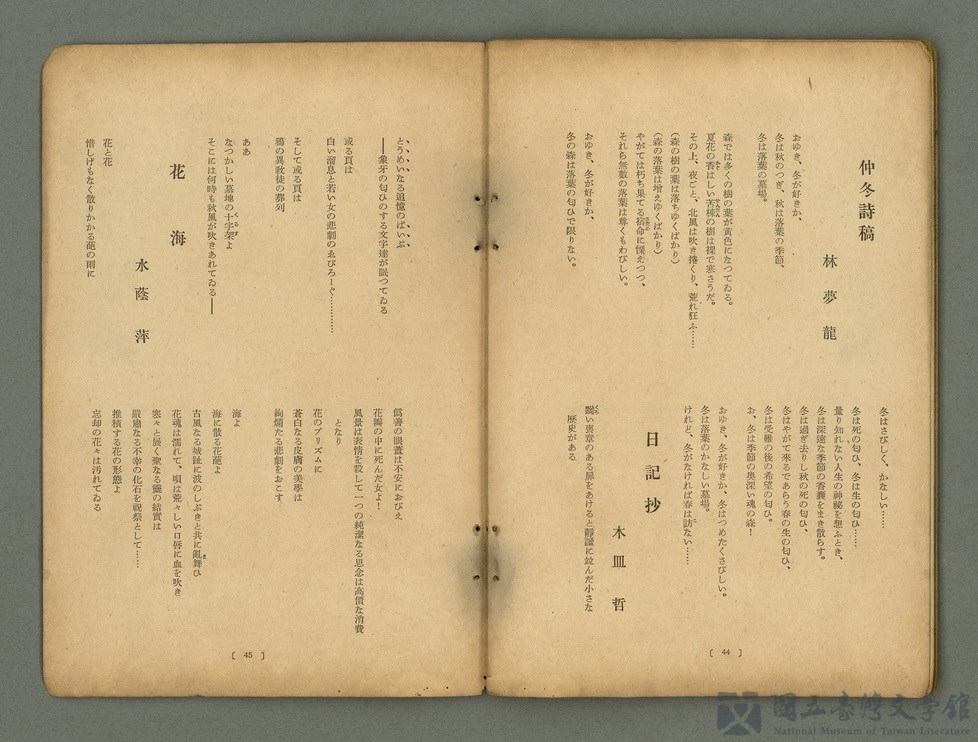 仲冬詩稿
林夢龍
おゆき、冬が好きか、
冬は秋のつぎ、秋は落葉の季節、
冬は落葉の墓場。
森では多くの樹の葉が黄色になつてゐる。
夏花の香はしい苦楝の樹は裸で寒さうだ。
その上、夜ごと、北風は吹き捲くり、荒れ狂ふ……
(森の樹の葉は落ちゆくばかり)
(森の落葉は増えゆくばかり)
やがては朽ち果てる宿命に慄えつつ、
それら無數の落葉は尊くもわびしい。
おゆき、冬が好きか、
冬の森は落葉の匂ひで限りない。
冬はさびしく、かなしい……
冬は死の匂ひ、冬は生の匂ひ……
量り知れない人生の神秘を想ふとき、
冬は深遠な季節の香嚢をまき散らす。
冬は過ぎ去りし秋の死の匂ひ、
冬はやがて來るであらう春の生の匂ひ、
冬は受難の後の希望の匂ひ。
お、冬は季節の奥深い魂の森!
おゆき、冬が好きか、冬はつめたくさびしい。
冬は落葉のかなしい墓場。
けれど、冬がなければ春は訪ない……
日記抄
木皿哲
い喪章のある扉をあけると靜謐に竝んだ小さな
歴史がある
[ 44 ]
とうめいなる追憶のぱいぷ
――象牙の匂ひのする文字達が眠つてゐる
或る頁は
白い溜息と若い女の悲劇のゑぴろーぐ…………
そして或る頁は
鴉の異教徒の葬列
ああ
なつかしい墓地の十字架よ
そこには何時も秋風が吹きあれてゐる――
花海
水蔭萍
花と花
惜しげもなく散りかかる葩の雨に
僞善の眼蓋は不安におびえ
花瓣の中に死んだ女よ!
風景は表情を殺して一つの純潔なる思念は高價な消費
となり
花のプリズムに
蒼白なる皮膚の美學は
絢爛たる悲劇をおこす
海よ
海に散る花葩よ
古風なる城趾に波のしぶきと共に亂舞ひ
花魂は濡れて、唄は荒々しい口唇に血を吹き
寒々と展く聖なる靈の結實は
嚴肅なる不幸の化石を祝祭として……
推積する花の形態よ
忘却の花々は汚れてゐる
[ 45 ]
國立臺灣文學館
National Museum of Taiwan Literature